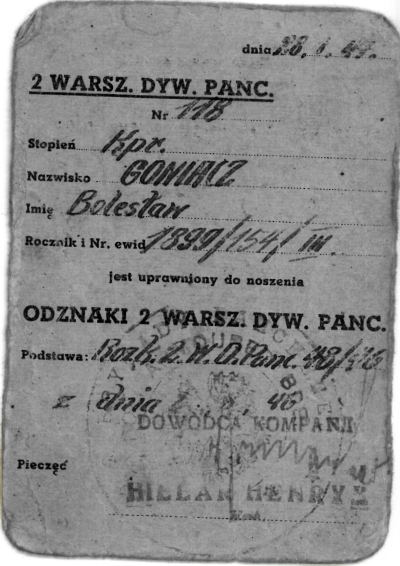 dnia 28. 1. 47.
2 WARSZ. DYW. PANC.
Nr 118
Stopień Kpr.
Nazwisko GONIACZ
Imię Bolesław
Rocznik i Nr. ewid 1899/154/III
jest uprawniony do noszenia
ODZNAKI 2 WARSZ. DYW. PANC.
Podstawa: Rozk. 2. W. D. Panc. 48/46
z dnia 46
DOWÓDCA KOMPANJI
Pieczęć
HILLAR HENRYK